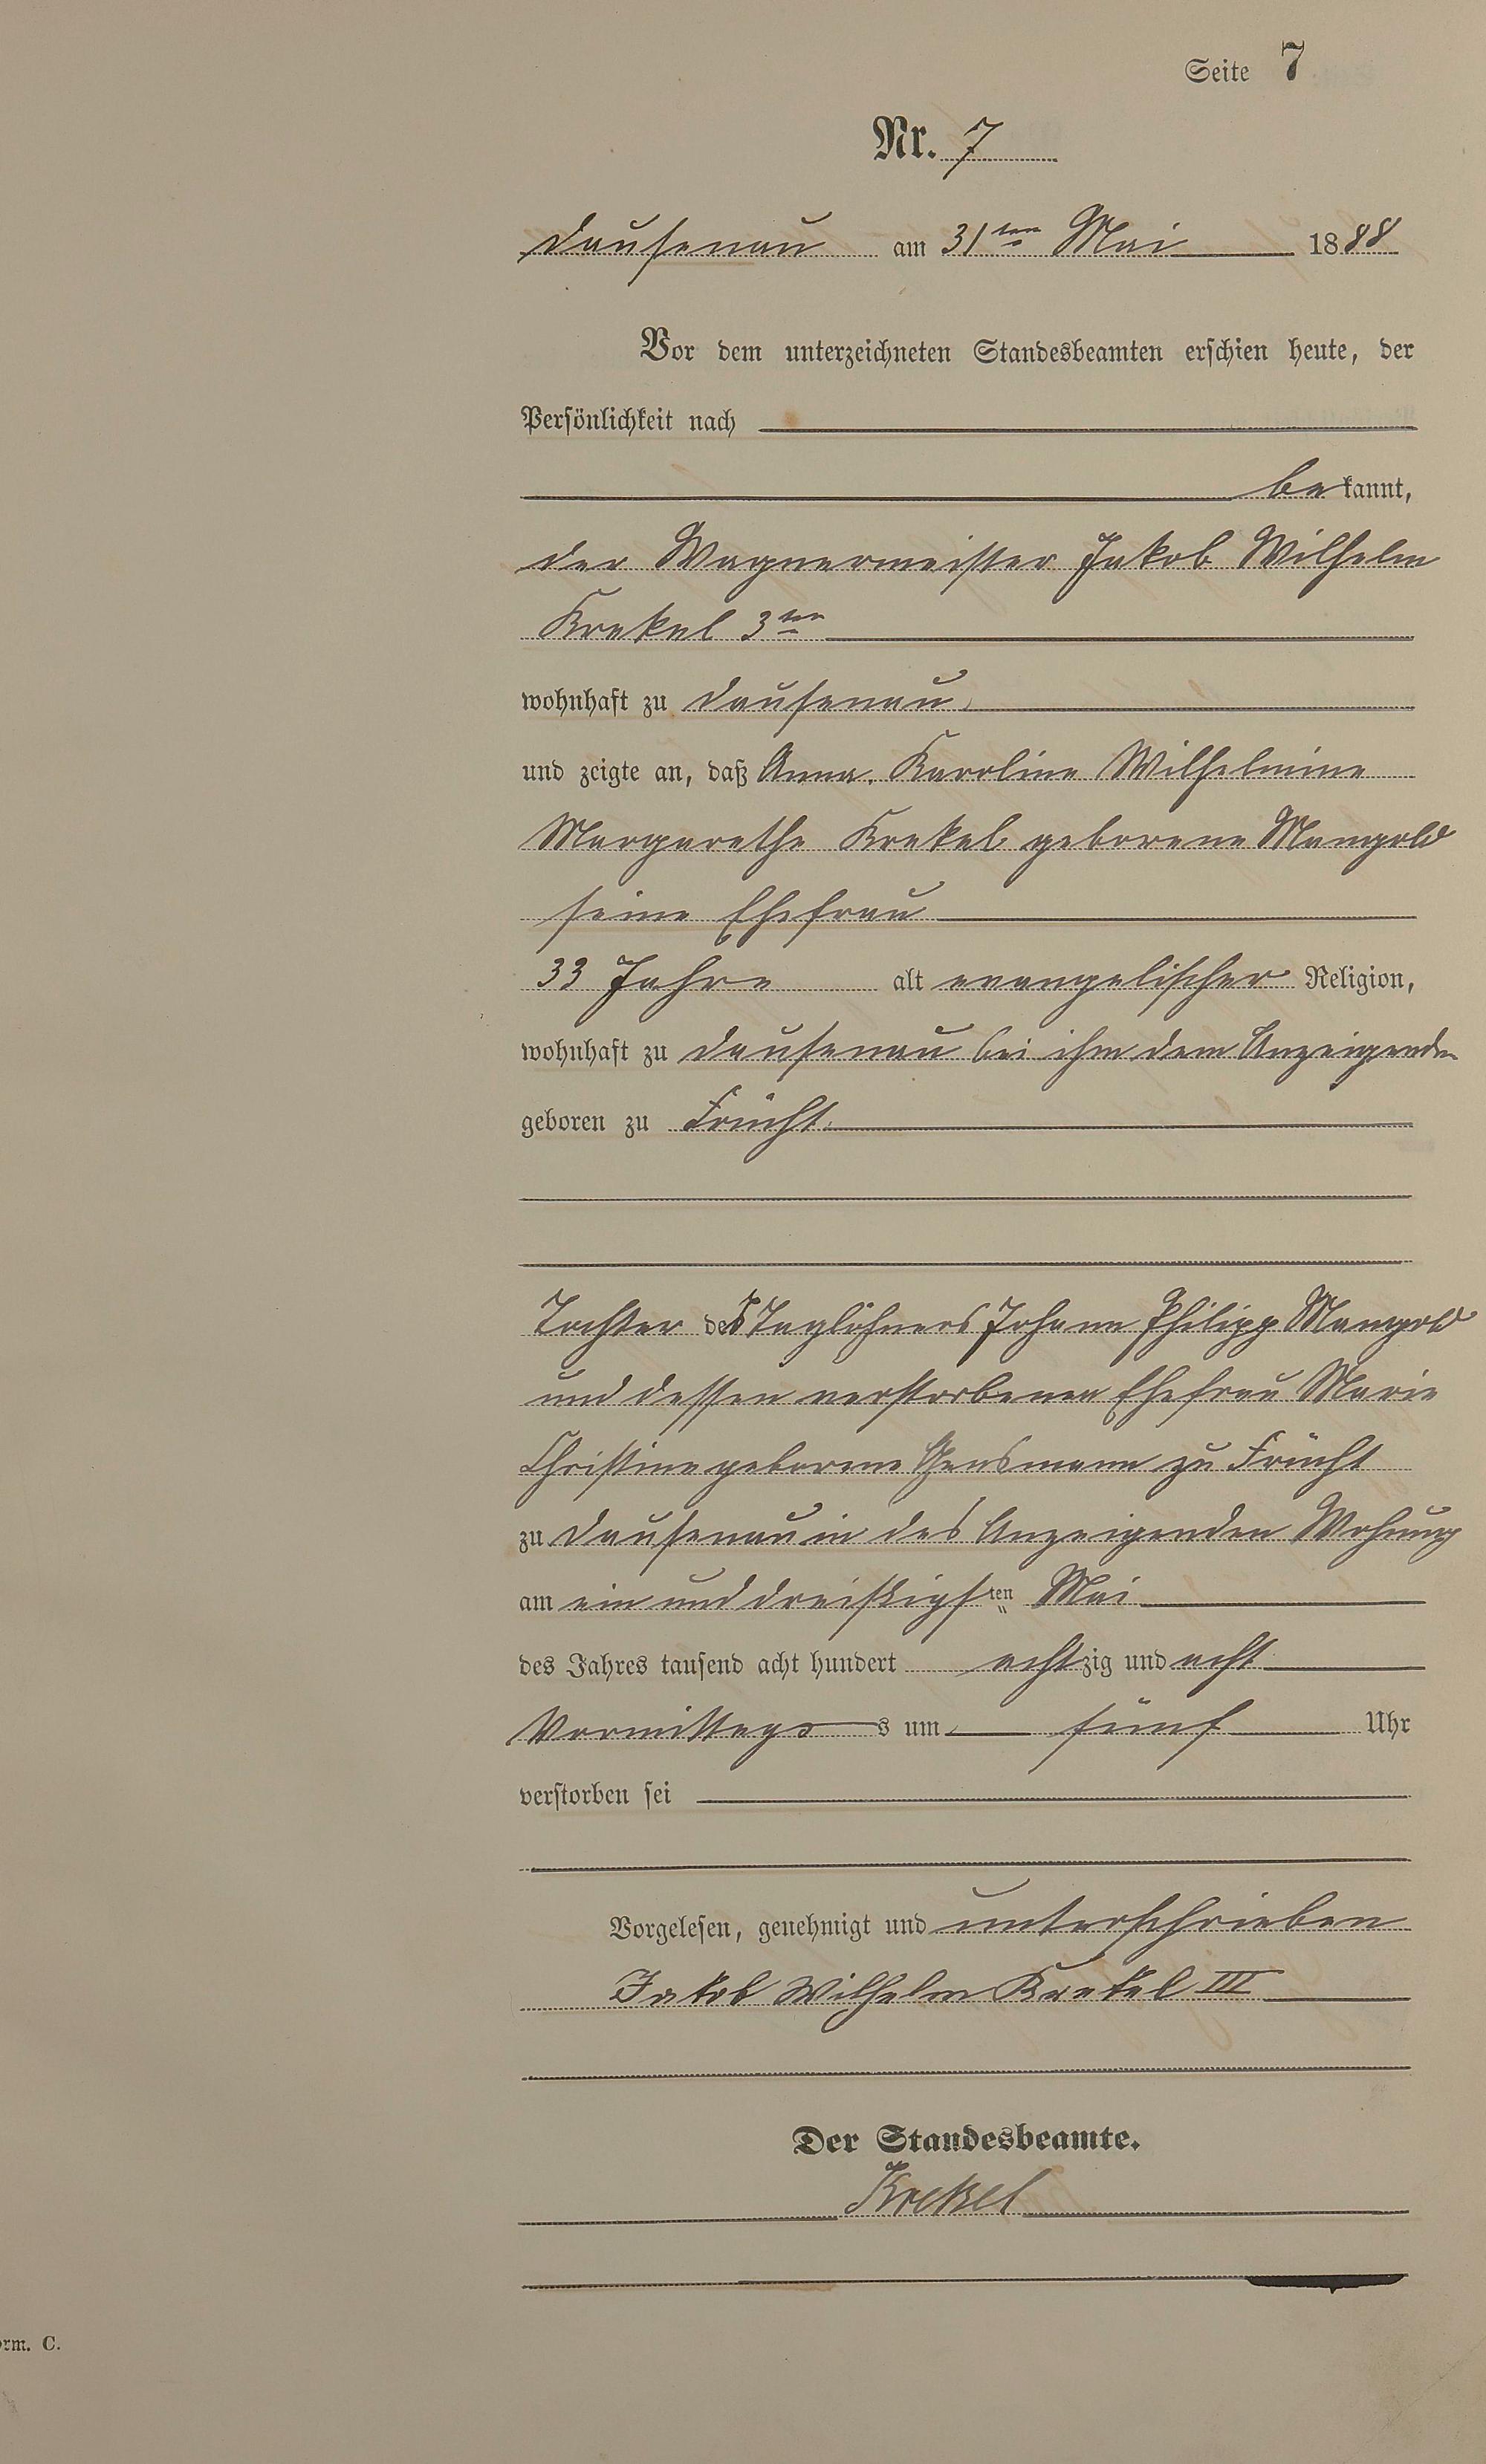 Seite 7
Nr. 7
Dausenau am 31ten Mai 1888
Vor dem unterzeichneten Standesbeamten erschien heute, der
Persönlichkeit nach
bekannt,
der Wagnermeister Jakob Wilhelm
Krekel 3ter
wohnhaft zu Dausenau,
und zeigte an, daß Anna Karoline Wilhelmine
Margarethe Krekel geborene Mangold
seine Ehefrau
33 Jahre alt evangelischer Religion,
wohnhaft zu Dausenau bei ihm dem Anzeigenden
geboren zu Frücht
Tochter des Taglöhners Johann Philipp Mangold
und dessen verstorbenen Ehefrau Marie
Christine geborene Gensmann zu Frücht
zu Dausenau in des Anzeigenden Wohnung
am ein und dreißigsten Mai
des Jahres tausend acht hundert achtzig und acht
Vormittags um fünf Uhr
verstorben sei
Vorgelesen, genehmigt und unterschrieben
Jakob Wilhelm Krekel III
Der Standesbeamte.
Krekel
orm. C.